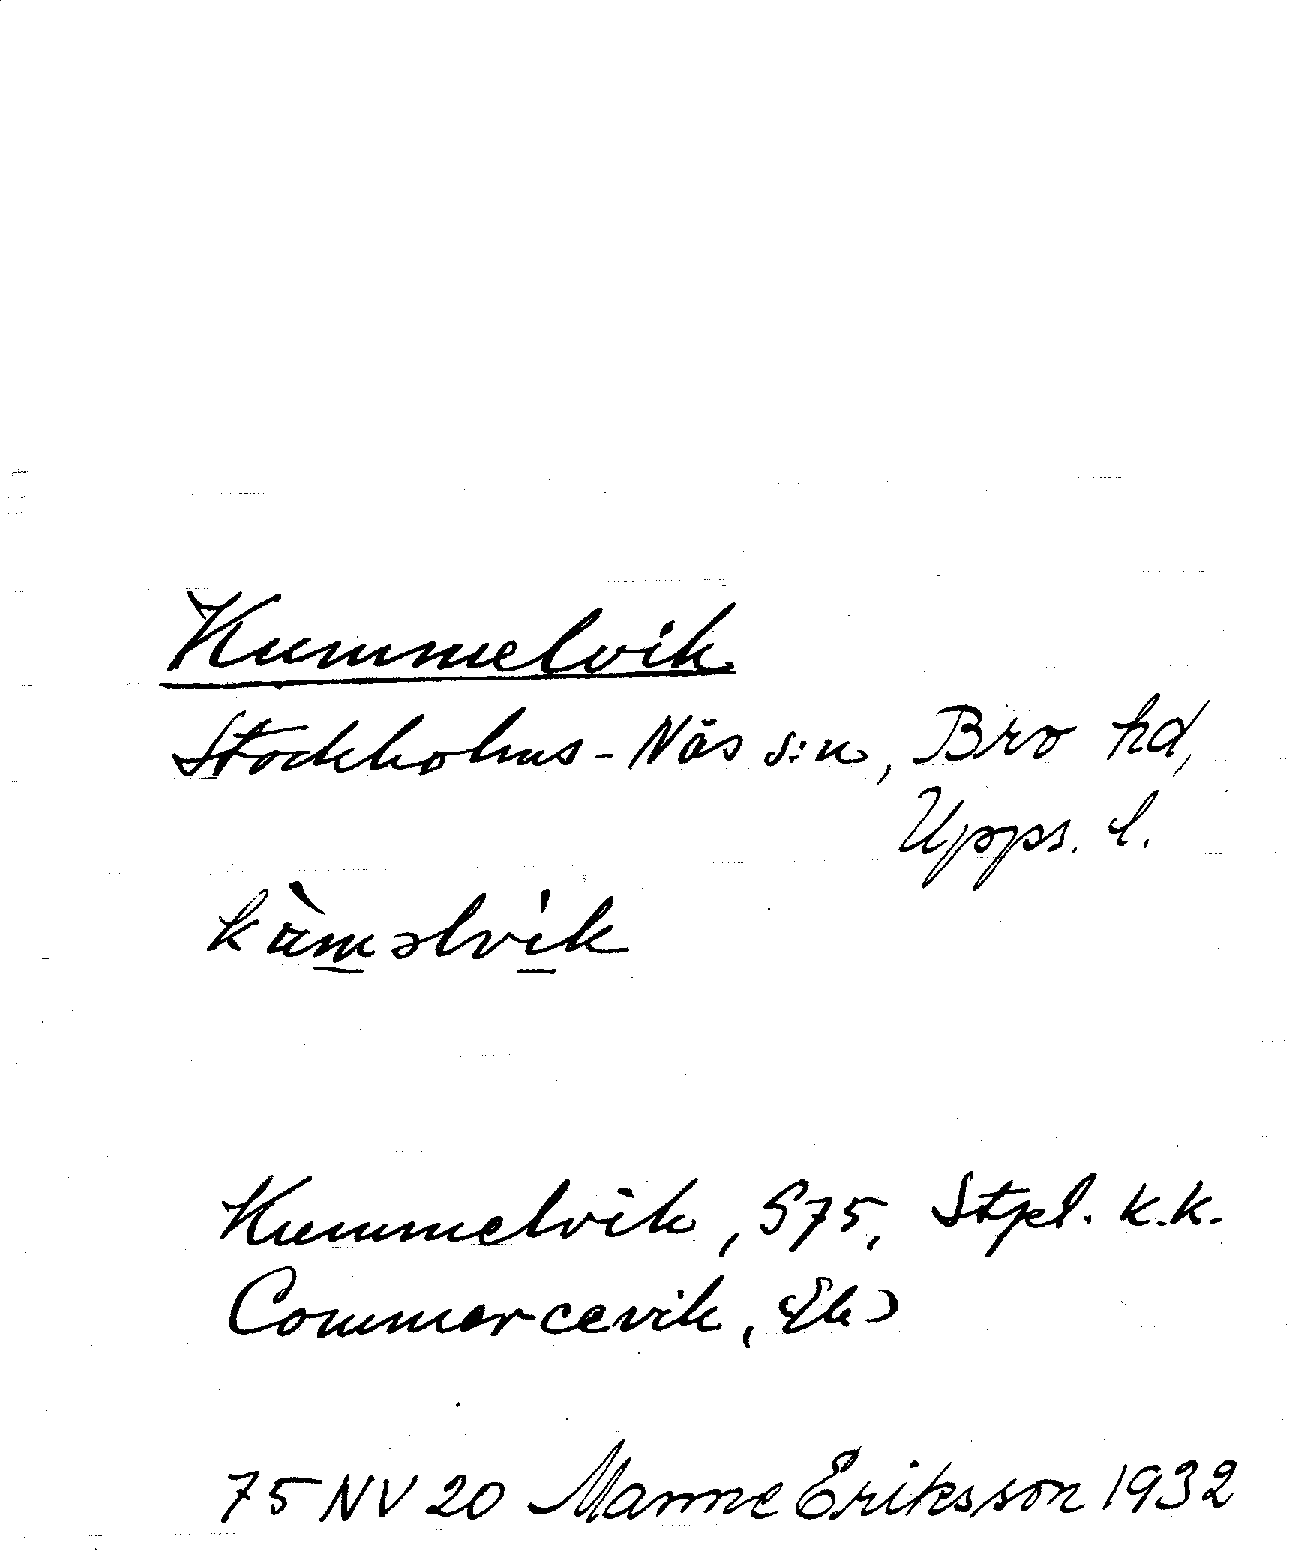 Kummelvik
Stockholms-Näs s:n, Bro hd,
Upps. l.
kàməlvìk
Kummelvik, S75, Stpl. K.K.
Commercevik, Ek)
75 NV 20 Manne Eriksson 1932